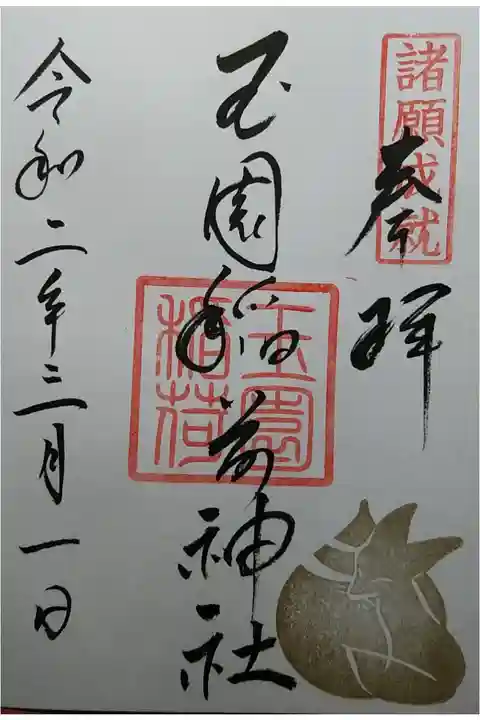 諸願成就
奉拝
玉園稲荷神社
玉園
稲荷
令和二年三月一日